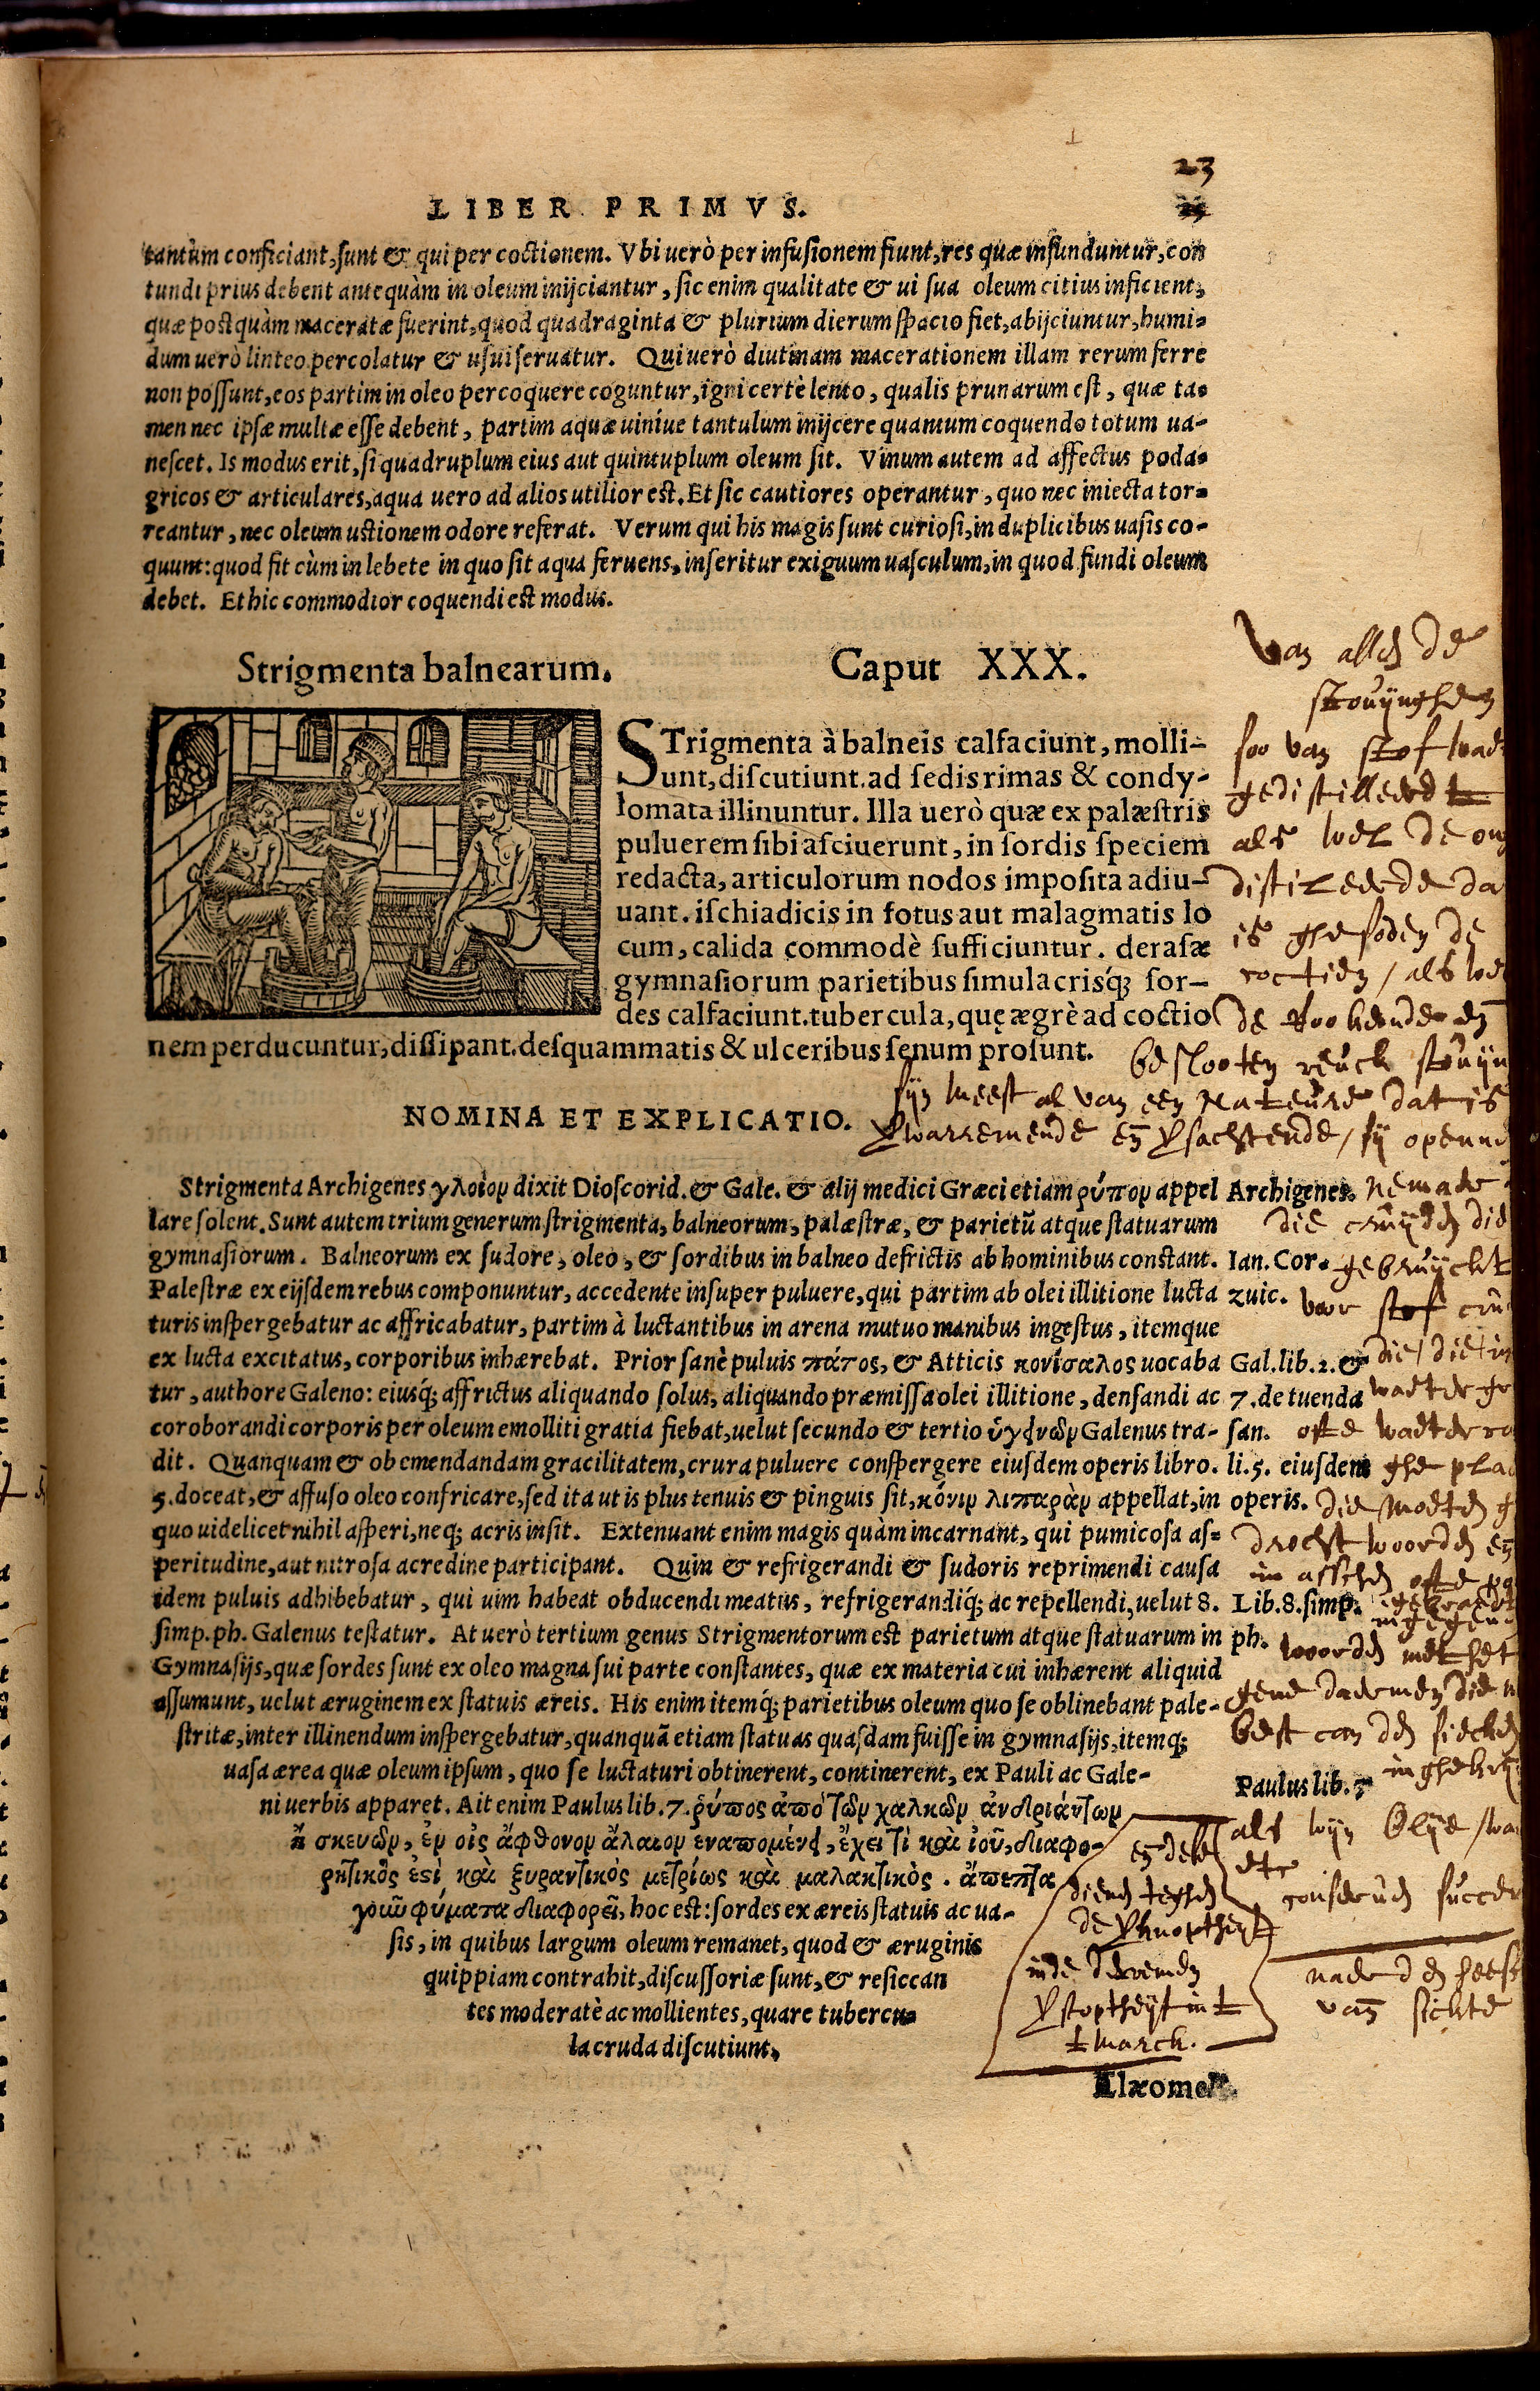 23
LIBER PRIMVS.
tantùm conficiant, sunt & qui per coctionem. Vbi uerò per infusionem fiunt, res quæ infunduntur, con
tundi prius debent antequàm in oleum inijciantur, sic enim qualitate & ui sua oleum citius inficient,
quæ postquàm maceratæ fuerint, quod quadraginta & plurium dierum spacio fiet, abijciuntur, humi-
dum uerò linteo percolatur & usui seruatur. Qui uerò diutinam macerationem illam rerum ferre
non possunt, eos partim in oleo percoquere coguntur, igni certè lento, qualis prunarum est, quæ ta-
men nec ipsæ multæ esse debent, partim aquæ uiníue tantulum inijcere quantum coquendo totum ua-
nescet. Is modus erit, si quadruplum eius aut quintuplum oleum sit. Vinum autem ad affectus poda-
gricos & articulares, aqua uero ad alios utilior est. Et sic cautiores operantur, quo nec iniecta tor-
reantur, nec oleum ustionem odore referat. Verum qui his magis sunt curiosi, in duplicibus uasis co-
quunt: quod fit cùm in lebete in quo sit aqua feruens, inseritur exiguum uasculum, in quod fundi oleum
debet. Et hic commodior coquendi est modus.
Strigmenta balnearum. Caput XXX.
STrigmenta à balneis calfaciunt, molli-
unt, discutiunt. ad sedis rimas & condy-
lomata illinuntur. Illa uerò quæ ex palæstris
puluerem sibi asciuerunt, in sordis speciem
redacta, articulorum nodos imposita adiu-
uant. ischiadicis in fotus aut malagmatis lo
cum, calida commodè sufficiuntur. derasæ
gymnasiorum parietibus simulacrisq́; sor-
des calfaciunt. tubercula, quę ægrè ad coctio
nem perducuntur, dissipant. desquammatis & ulceribus senum prosunt.
Van allen de
stovijnghen
soo van stof
gedistilleerd
als wel de
distileerde
is ghesoden de
coctien / als
de
beslooten reuck
sijn meest al van een Nateure dat is
Vwarremende en Vsachtende / sij
NOMINA ET EXPLICATIO.
Strigmenta Archigenes γλοίον dixit Dioscorid. & Gale. & alij medici Græci etiam ῥύπον appel
lare solent. Sunt autem trium generum strigmenta, balneorum, palæstræ, & parietũ atque statuarum
gymnasiorum. Balneorum ex sudore, oleo, & sordibus in balneo defrictis ab hominibus constant.
Palestræ ex eijsdem rebus componuntur, accedente insuper puluere, qui partim ab olei illitione lucta
turis inspergebatur ac affricabatur, partim à luctantibus in arena mutuo manibus ingestus, itemque
ex lucta excitatus, corporibus inhærebat. Prior sanè puluis πάτος, & Atticis κονίσαλος uocaba
tur, authore Galeno: eiusq́; affrictus aliquando solus, aliquando præmissa olei illitione, densandi ac
coroborandi corporis per oleum emolliti gratia fiebat, uelut secundo & tertio ὑγιεινῶν Galenus tra-
dit. Quanquam & ob emendandam gracilitatem, crura puluere conspergere eiusdem operis libro.
5. doceat, & affuso oleo confricare, sed ita ut is plus tenuis & pinguis sit, κόνιν λιπαρὰν appellat, in
quo uidelicet nihil asperi, neq; acris insit. Extenuant enim magis quàm incarnant, qui pumicosa as-
peritudine, aut nitrosa acredine participant. Quin & refrigerandi & sudoris reprimendi causa
idem puluis adhibebatur, qui uim habeat obducendi meatus, refrigerandiq́; ac repellendi, uelut 8.
simp. ph. Galenus testatur. At uerò tertium genus Strigmentorum est parietum atque statuarum in
Gymnasijs, quæ sordes sunt ex oleo magna sui parte constantes, quæ ex materia cui inhærent aliquid
assumunt, uelut æruginem ex statuis æreis. His enim itemq́; parietibus oleum quo se oblinebant pale-
stritæ, inter illinendum inspergebatur, quanquã etiam statuas quasdam fuisse in gymnasijs, itemq;
uasa ærea quæ oleum ipsum, quo se luctaturi obtinerent, continerent, ex Pauli ac Gale-
ni uerbis apparet. Ait enim Paulus lib. 7. ῥύπος ἀπὸ τῶν χαλκῶν ἀνδριάντων
ἢ σκευῶν, ἐν οἷς ἄφθονον ἔλαιον εναπομένει, ἔχει τὶ καὶ ἰοῦ, διαφο-
ρητικὸς ἐστὶ καὶ ξηραντικὸς μετρίως καὶ μαλακτικὸς. ἄπεπτα
γοῦν φύματα διαφορεῖ, hoc est: sordes ex æreis statuis ac ua-
sis, in quibus largum oleum remanet, quod & æruginis
quippiam contrahit, discussoriæ sunt, & resiccan
tes moderatè ac mollientes, quare tubercu-
la cruda discutiunt.
Archigenes.
Ian. Cor-
zuic.
Gal. lib. 2. &
7. de tuenda
san.
li. 5. eiusdem
operis.
Lib. 8. simp.
ph.
Paulus lib. 7
die cruijden die
gebruijckt
voor stof
ofte
die moeten
woorden
in asschen ofte
woorden met het
gene
best can den siecken
als wijn olije
etc
dienen teghen
de
inde
Vstoptheijt in t
t march.
van sichte
Elæomeli.